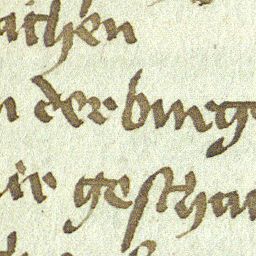 achen
n der burg
ir gescha